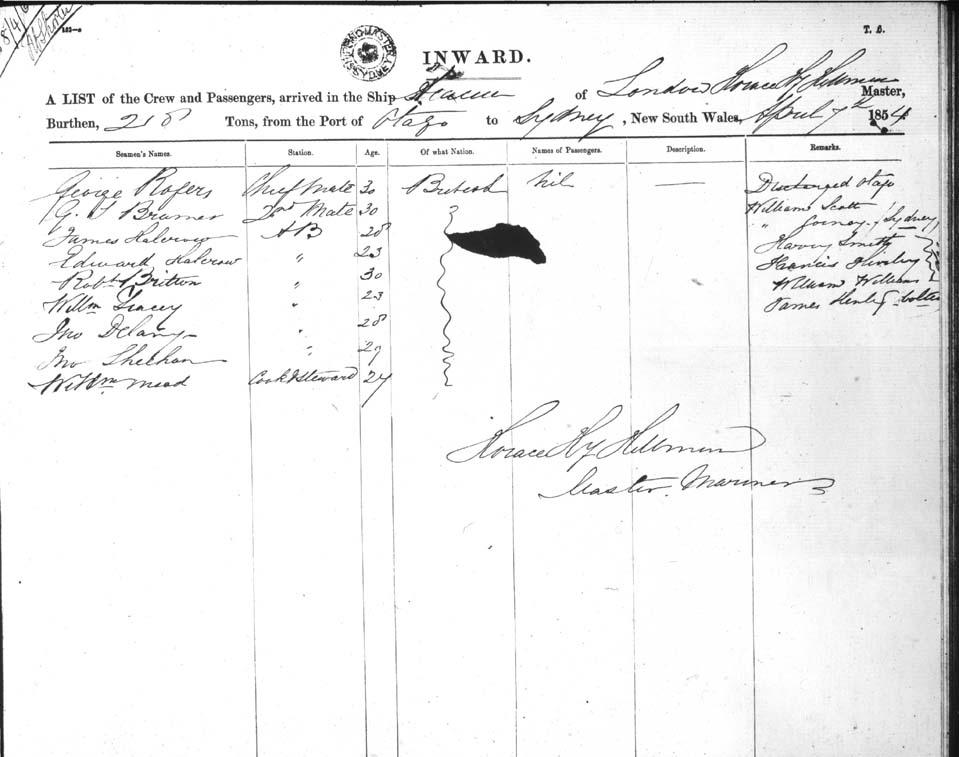 183—s
T. B.
INWARD.
A LIST of the Crew and Passengers, arrived in the Ship of London Horace Hy Hillman Master,
Burthen, 218 Tons, from the Port of Otago to Sydney, New South Wales, April 7th 1854
Seamen's Names. Station. Age. Of what Nation. Names of Passengers. Description. Remarks.
George Rogers Chief Mate 30 British Nil — Discharged Otago
G. Bramer 2nd Mate 30 William Scott
James Halcrow AB 28 " Sydney
Edward Halcrow " 23 Harvey Smith
Robt Britton " 30 Francis
Willm Stacey " 23 William Williams
Jno Delany " 28 James Henley
Jno Sheehan " 29
Willm Mead Cook & Steward 24
Horace Hy Hillman
Master Mariner